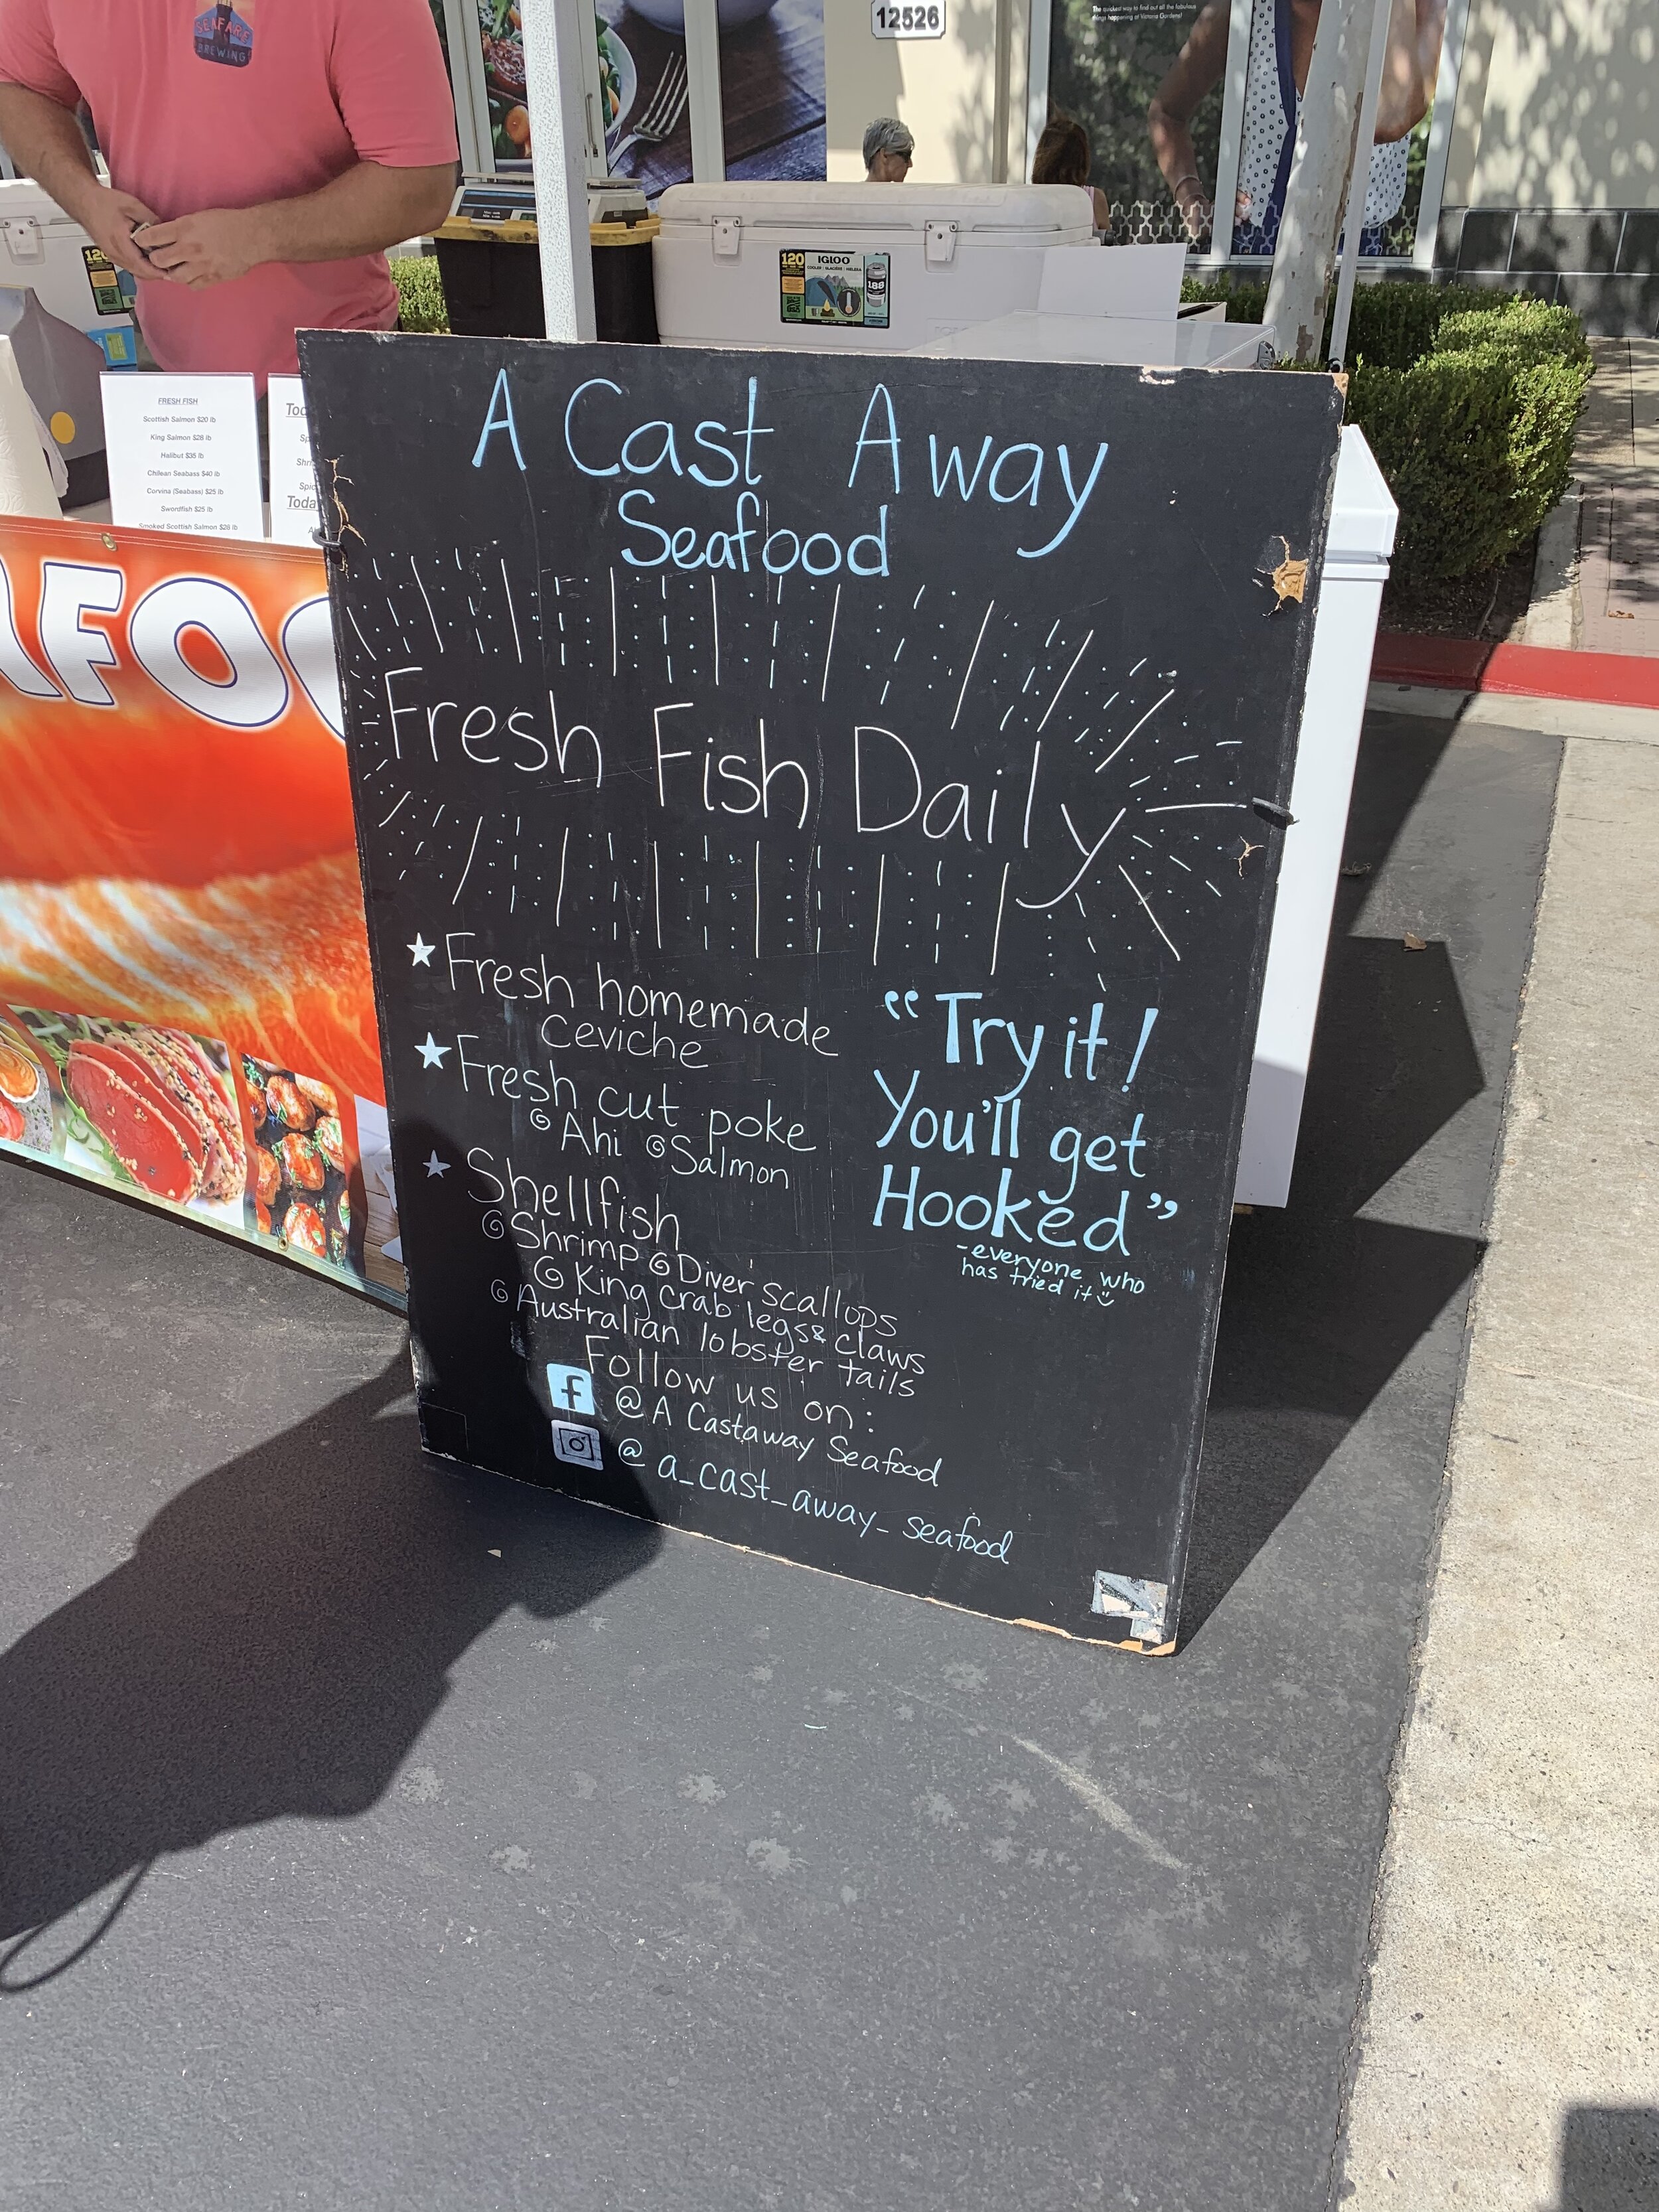 SEAFARE
BREWING
12526
The quickest way to find out all the fabulous
things happening at Victoria Gardens!
120
IGLOO
COOLER | GLACIÈRE | HIELERA
188
FRESH FISH
Scottish Salmon $20 lb
King Salmon $28 lb
Halibut $35 lb
Chilean Seabass $40 lb
Corvina (Seabass) $25 lb
Swordfish $25 lb
Smoked Scottish Salmon $28 lb
A Cast Away
Seafood
Fresh Fish Daily
★ Fresh homemade
ceviche
★ Fresh cut poke
Ahi Salmon
★ Shellfish
Shrimp Diver scallops
King crab legs & claws
Australian lobster tails
"Try it!
You'll get
Hooked"
-everyone who
has tried it
Follow us on:
f @A Castaway Seafood
@a_cast_away_seafood